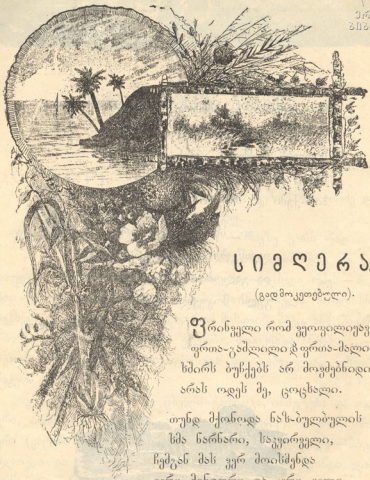 სიმღერა
(გადმოკეთებული).
ფრინველი რომ ვყოფილიყავ
ფრთა-გაშლილი ფრთა-მალი
ხშირს ბუჩქებს არ მოვშორდი
არას ოდეს მე, ცოცხალი.
თუნდ მქონოდა ნაზ-ბულბულის
ხმა ნარნარი, საკვირველი,
ჩემგან მას ვერ მოისმენდა